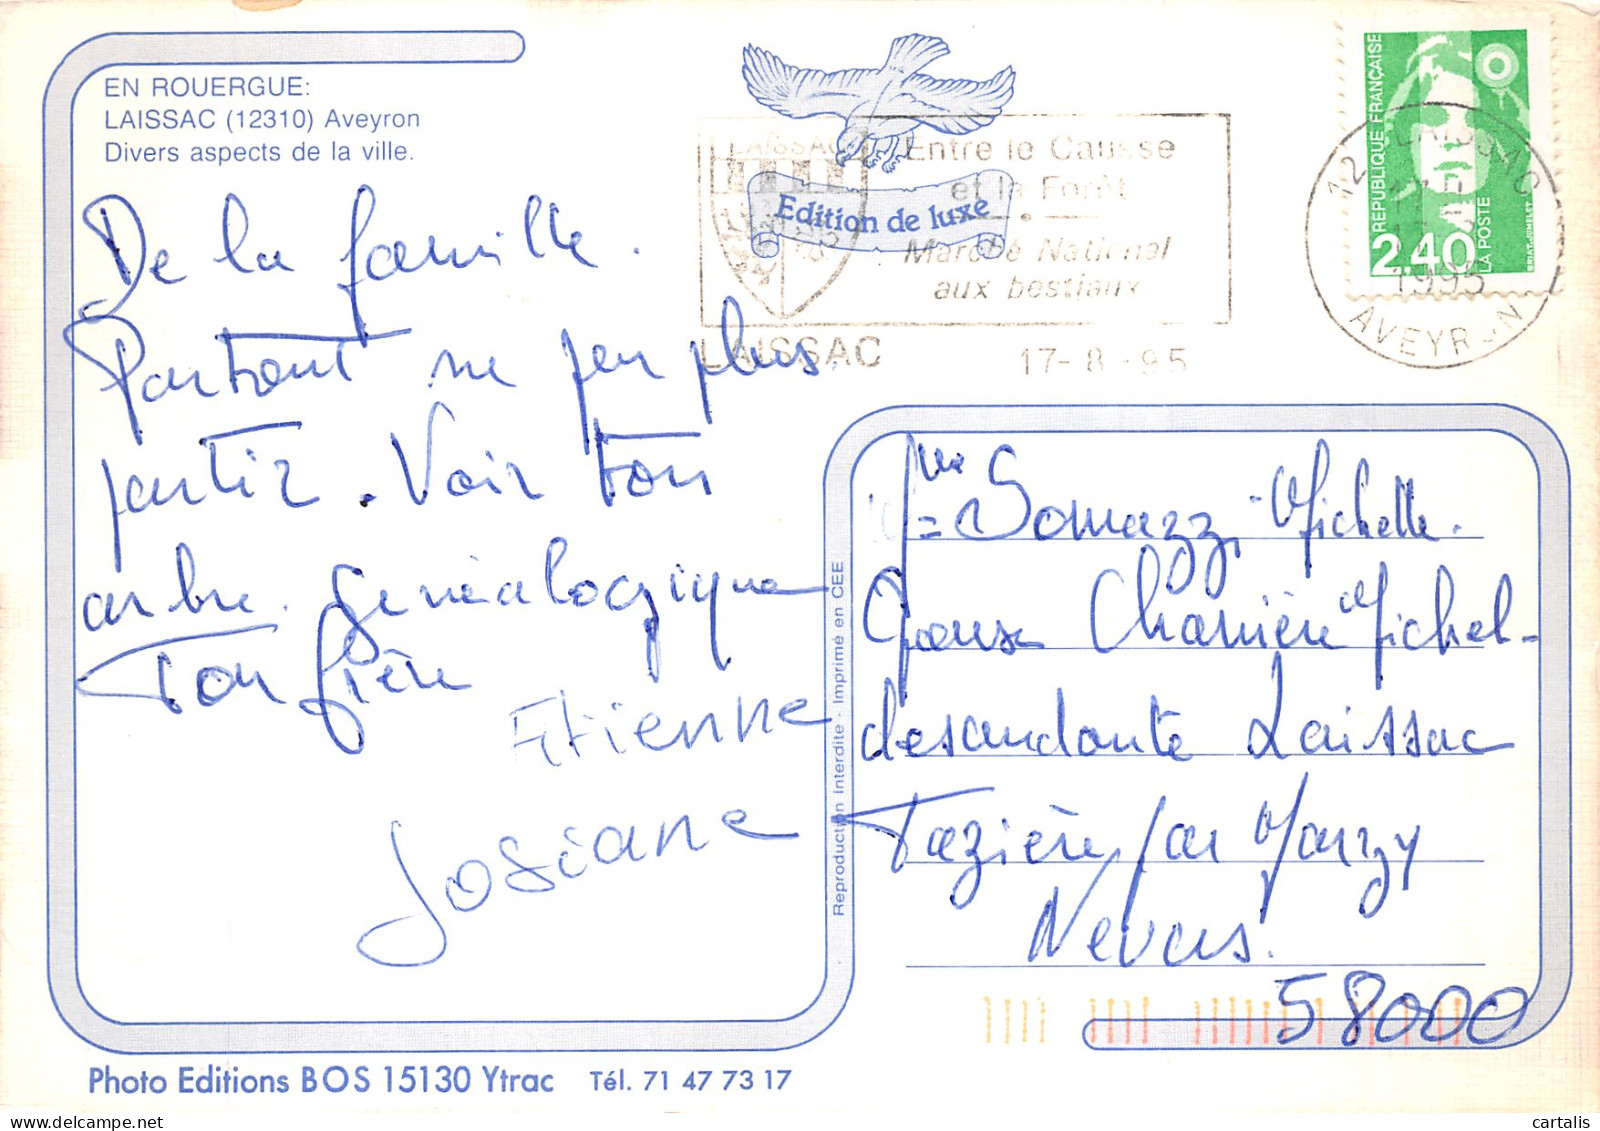 EN ROUERGUE:
LAISSAC (12310) Aveyron
Divers aspects de la ville.
Edition de luxe
LAISSAC
Entre le Causse
et la Forêt
Marché National
aux bestiaux
LAISSAC 17-8-95
12 LAISSAC
1995
AVEYRON
REPUBLIQUE FRANÇAISE
2,40
LA POSTE
De la famille.
Partout ne peu plus
partir. Voir ton
arbre. Généalogique
Ton frère
Etienne
Josiane
Reproduction Interdite - Imprimé en CEE
Somazzi Michelle.
Chanière Michel-
desandante Laissac
Tazière par Marzy
Nevers.
58000
Photo Editions BOS 15130 Ytrac Tél. 71 47 73 17
cartalis